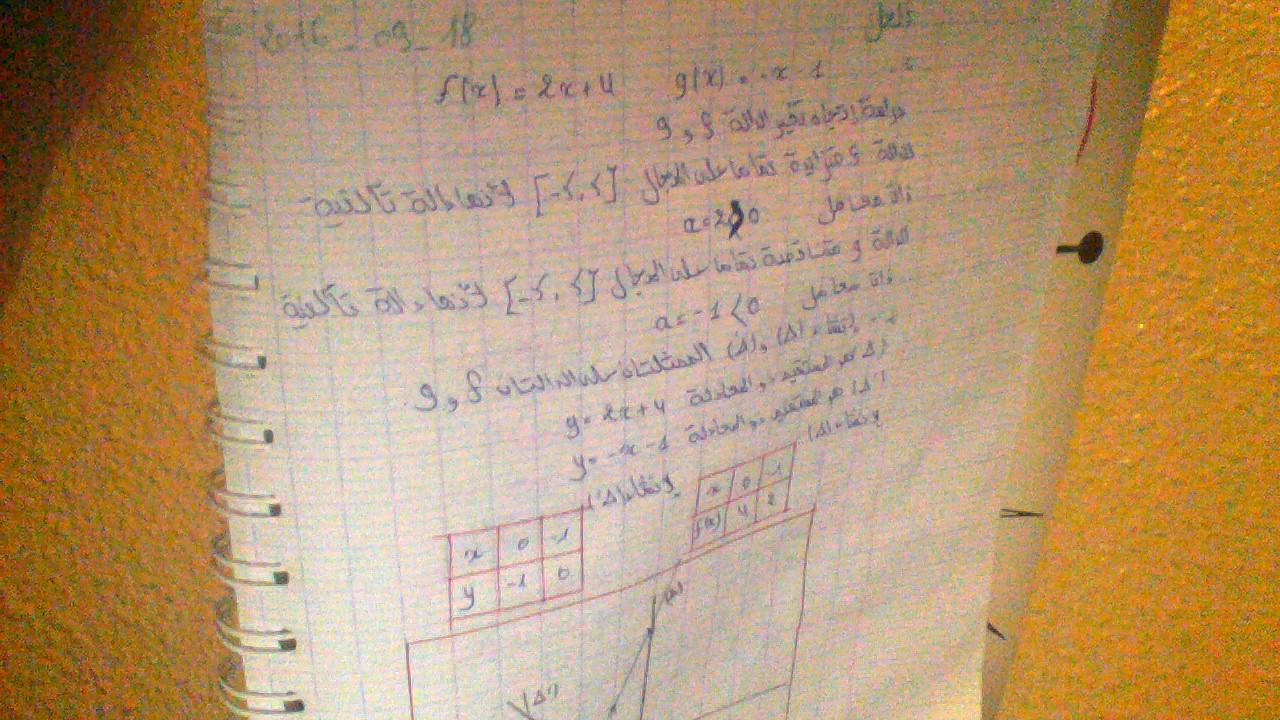 2016 - 09 - 18
f(x) = 2x+4 g(x) = -x-1
دراسة إتجاه تغير الدالة f و g
الدالة f متزايدة تماما على المجال [-5, 5] لأنها دالة تآلفية
ذات معامل a=2>0
الدالة g متناقصة تماما على المجال [-5, 5] لأنها دالة تآلفية
ذات معامل a=-1<0
(Δ), (Δ') الممثلتان للدالتان f و g
(Δ) هو المستقيم ذو المعادلة y=2x+4
(Δ') هو المستقيم ذو المعادلة y=-x-1
إنشاء (Δ)
إنشاء (Δ')
x 0 -1
f(x) 4 2
x 0 -1
y -1 0
(Δ)
(Δ')